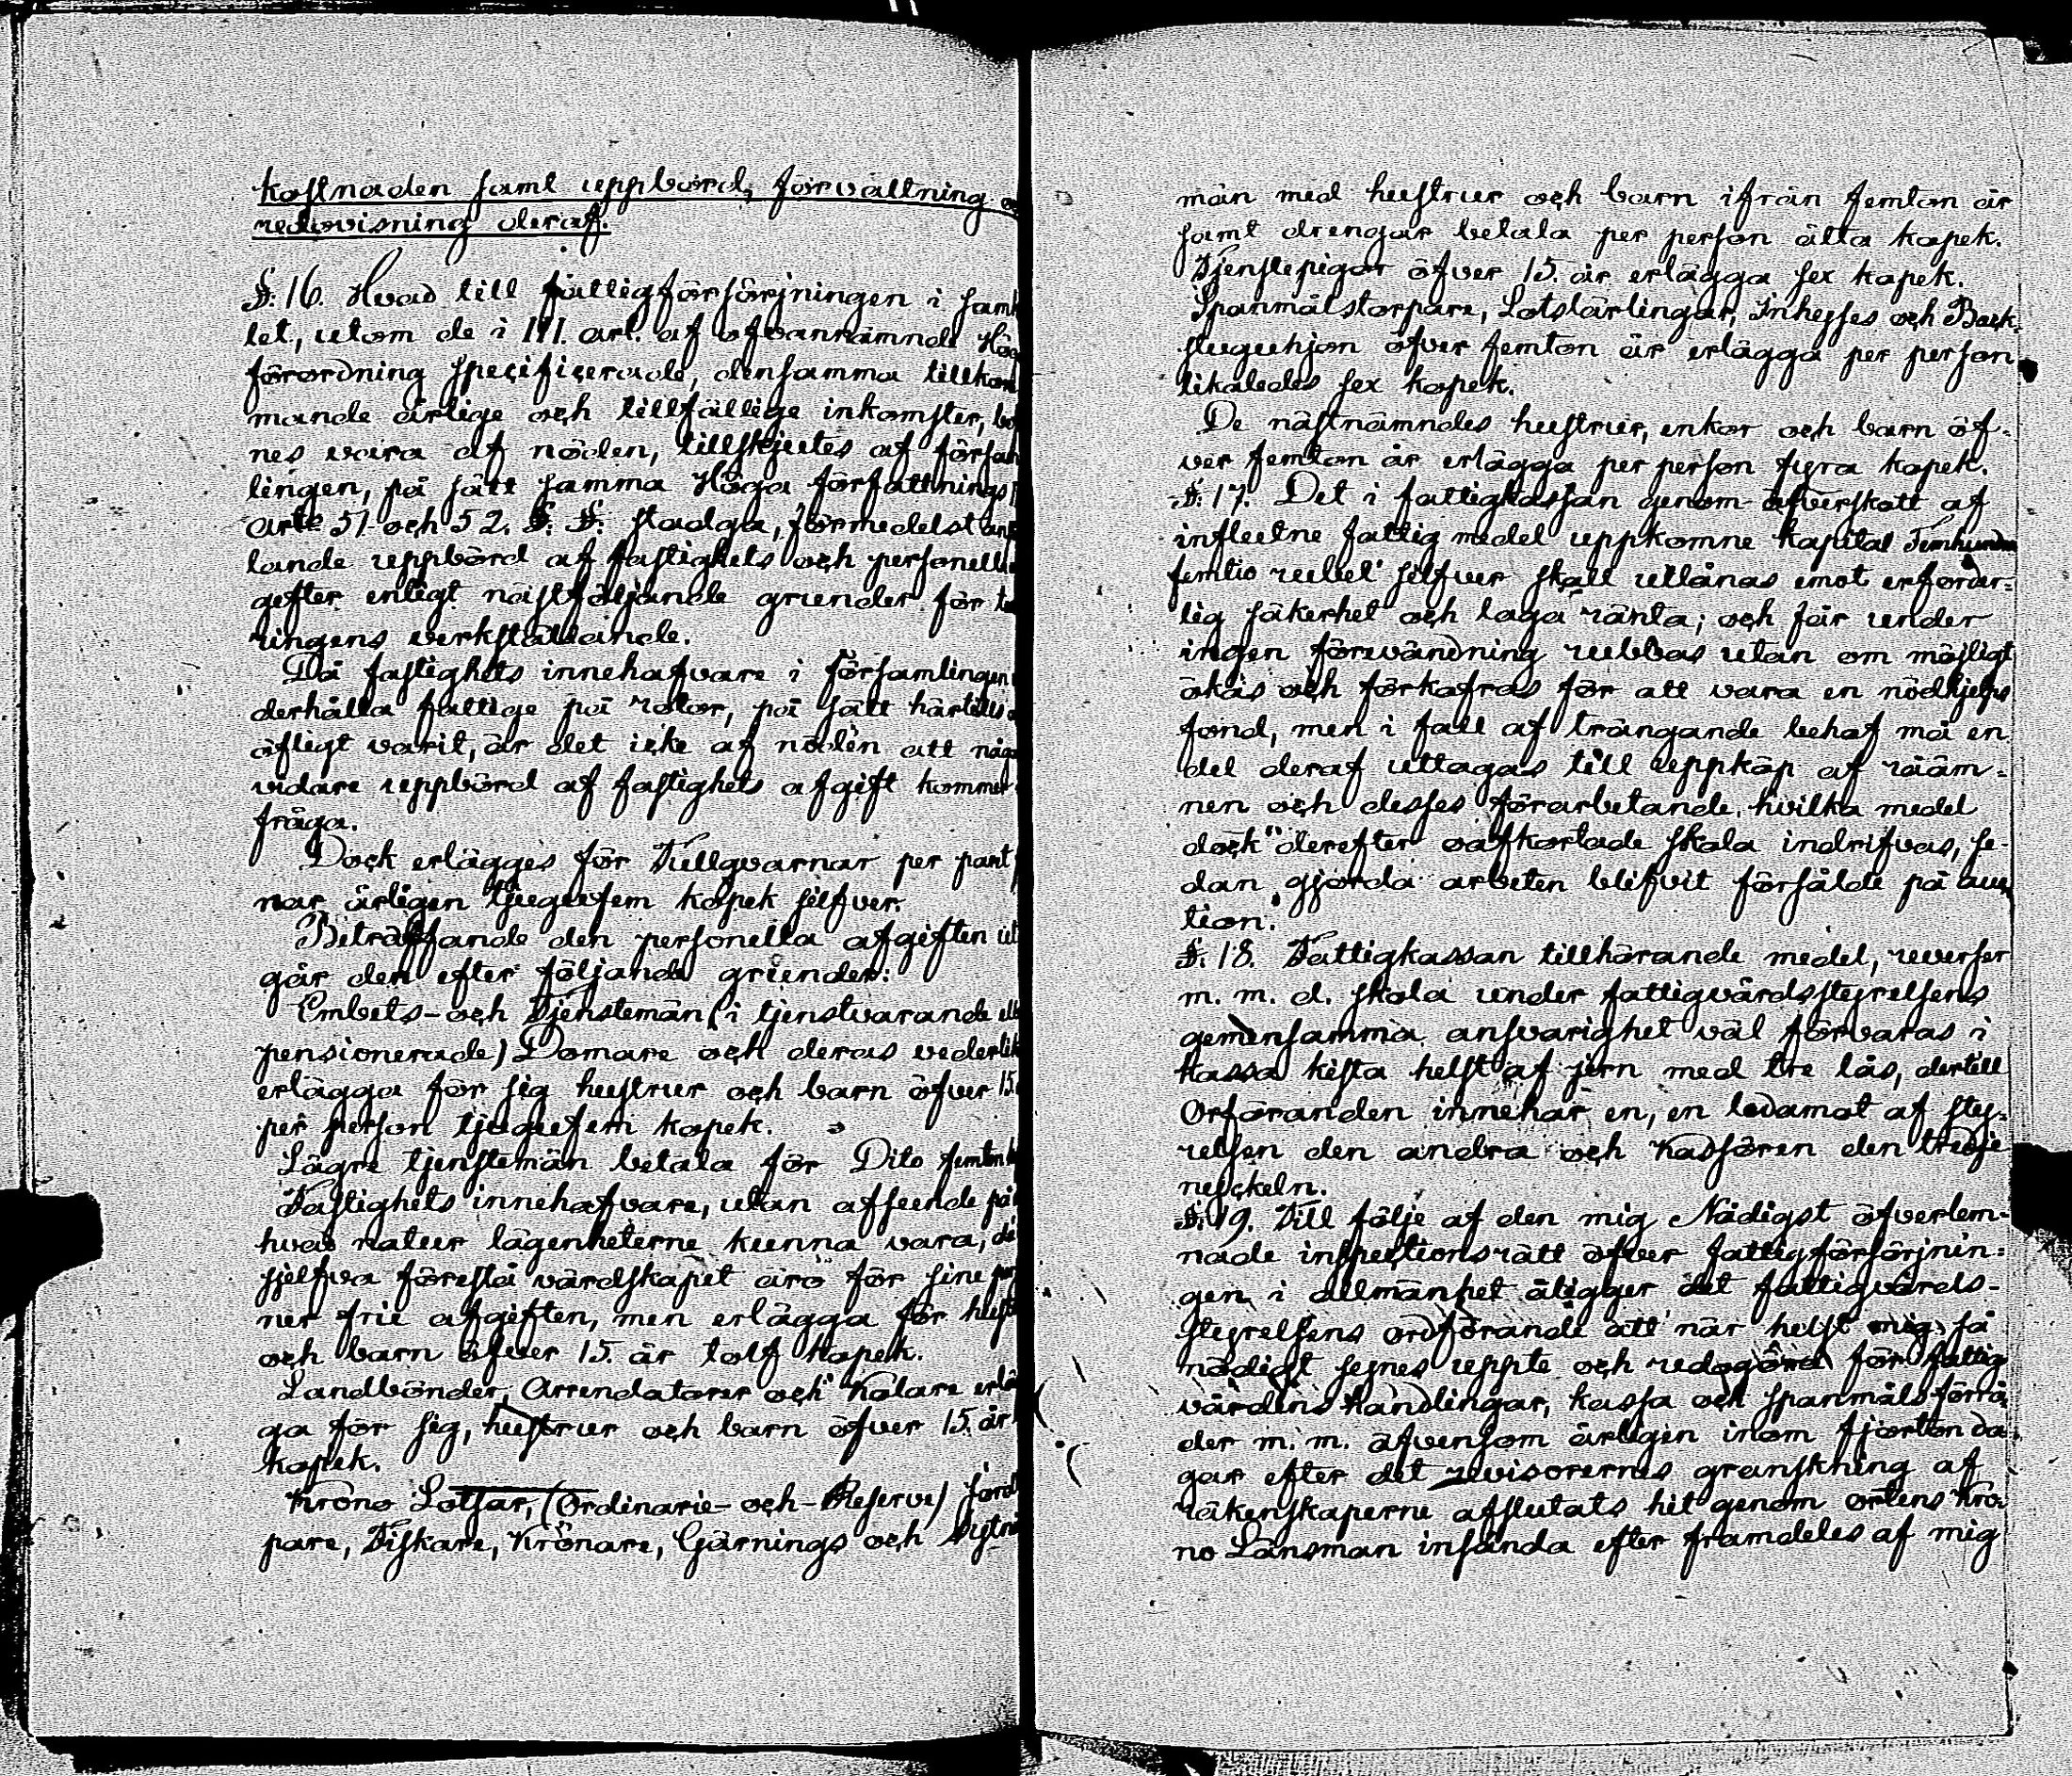 kostnaden samt uppbörd, förvaltning
redovisning deraf.
§. 16. Hvad till fattigförsörjningen i
let, utom de i III. art. af ofvannämnde
förordning specificerade, densamma tillkom
mande årlige och tillfällige inkomster,
nes vara af nöden, tillskjutes af försam
lingen, på sätt samma Höga författnings
51 och 52. §. §. stadga, förmedelst
lande uppbörd af fastighets och personelle
gefter enligt nästföljande grunder för
ringens verkställande.
Då fastighets innehafvare i Församlingen
derhålla fattige på rotor, på sätt härtills
öfligt varit, är det icke af nöden att någo
vidare uppbörd af fastighets afgift kommer
fråga.
Dock erlägges för Tullqvarnar per par
nar årligen tjugufem kopek silfver.
Beträffande den personella afgiften ut
går den efter följande grunder:
Embets- och Tjenstemän (i tjenstvarande
pensionerade) Domare och deras vederlik
erlägga för sig hustrur och barn öfver 15.
per person tjugufem kopek.
Lägre tjenstemän betala för Dito femton
Fastighets innehafvare, utan afseende på
hvad natur lägenheterne kunna vara,
sjelfva förestå värdskapet äro för sine
ner frie afgiften, men erlägga för
och barn öfver 15. år tolf kopek.
Landbönder, Arrendatorer och Kolare erlä
ga för sig, hustrur och barn öfver 15. år
kopek.
Krono Lotsar, (Ordinarie- och- Reserve)
pare, Fiskare, Krönare, Gärnings och
män med hustrur och barn ifrån femton år
samt drengar betala per person åtta kopek.
Tjenstepigor öfver 15. år erlägga sex kopek.
Spanmålstorpare, Lotslärlingar, Inhyses och Back-
stuguhjon öfver femton år erlägga per person
likaledes sex kopek.
De nästnämndes hustrur, enkor och barn öf-
ver femton år erlägga per person fyra kopek.
§. 17. Det i fattigkassan genom öfverskott af
influtne fattig medel uppkomne kapital Femhundra
femtio rubel silfver skall utlånas emot erforder-
lig säkerhet och laga ränta; och får under
ingen förevändning rubbas utan om möjligt
ökas och förkofras för att vara en nödhjelps
fond, men i fall af trängande behof må en
del deraf uttagas till uppköp af rääm-
nen och desses förarbetande, hvilka medel
dock derefter oafkortade skola indrifvas, se-
dan gjorda arbeten blifvit försålde på auc
tion.
§. 18. Fattigkassan tillhörande medel, reverser
m. m. d. skola under fattigvårdsstyrelsens
gemensamma ansvarighet väl förvaras i
kassa kista helst af jern med tre lås, dertill
Orföranden innehar en, en ledamot af sty-
relsen den andra och Kasören den tredje
nyckeln.
§. 19. Till följe af den mig Nådigst öfverlem-
nade inspectionsrätt öfver fattigförsörjnin-
gen i allmänhet åligger det fattigvårds-
styrelsens ordförande att när helst mig så
nödigt synes uppte och redogöra för fattig
vårdens handlingar, kassa och spanmåls förrå
der m. m. äfvensom årligen inom fjorton da-
gar efter det revisorernes granskning af
räkenskaperne afslutats hit genom ortens Kro-
no Länsman insända efter framdeles af mig